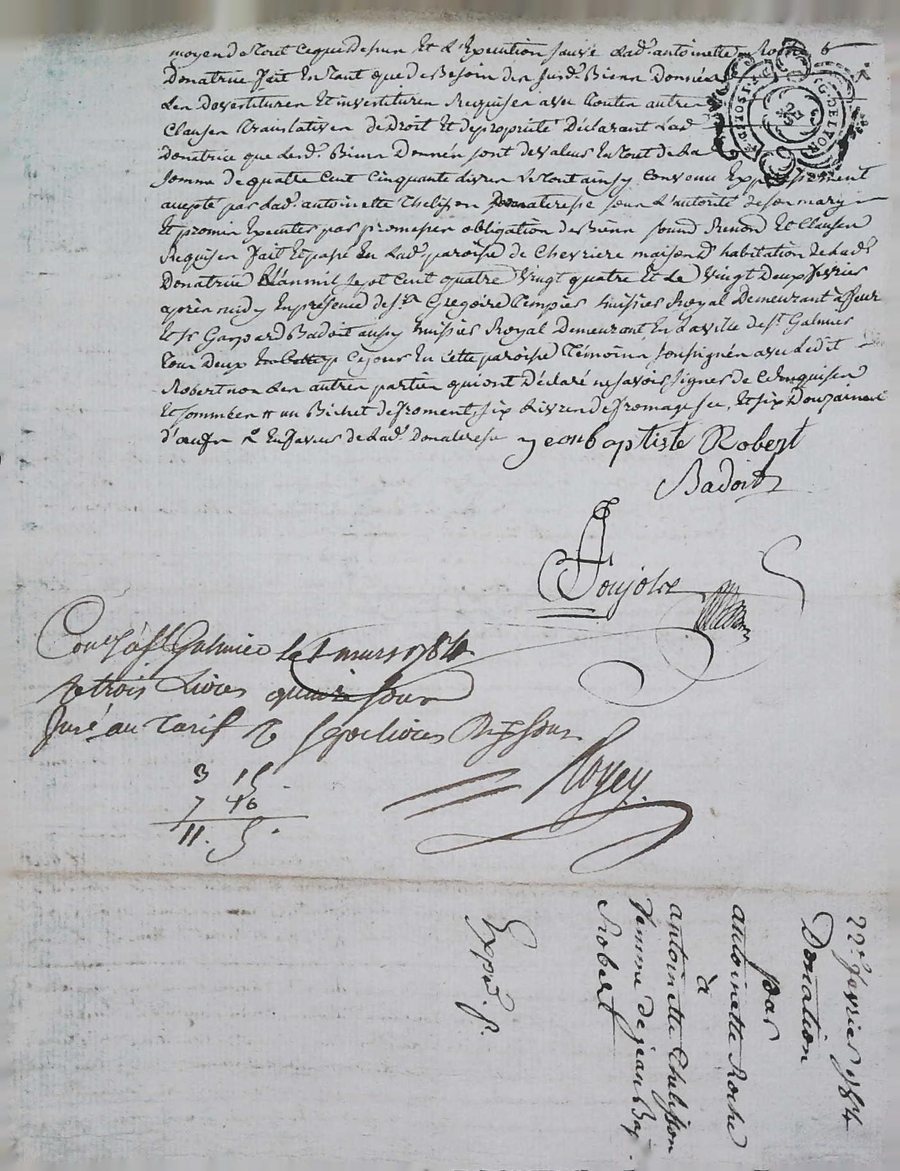 moyend Tout ceque dessus Et L'Execution sauve Lad.e antoinette Roche
Donatrice fait En tant que de Besoin des susd. Biens Donnés
Les Devestitures Et investitures Requises avec Toutes autres
Clauses translatives de Droit Et de propriété Déclarant Lad.
donatrice que Lesd. Biens Donnés sont de valeur En tout de La
somme de quatre Cent Cinquante Livres Le tout ainsy Convenu Expressement
accepté par Lad. antoinette Thelisson sous L'autorité de son mary
Et promis Executer par promesses obligation de Biens soumd Renond Et Clauses
Requises fait Et passé En Lad. paroisse de Chevriere maison d'habitation de Lad.
Donatrice L'an mil sept Cent quatre Vingt quatre Et Le Vingt Deux fevrier
après midy En presence de sr. Gregoire Tempier huissier Royal Demeurant
Et sr Gaspard Badoit aussy huissier Royal Demeurant En La ville de st. Galmier
Tous Deux Ce jour En cette paroisse Témoins soussignés avec Ledit
Robert non Les autres parties qui ont Déclaré ne savoir signer de Ce Enquises
Et sommées un Bichet de froment, six Livres de fromage sec, Et six Douzaines
d'oeufs En faveur de Lad.
jean baptiste Robert
Badoit
Poujolse
Con.lé à St Galmier le 1 mars 1784
Re trois Livres quinze sous
au Tarif sept livres Dix sous
3 15
7 10
11. 5.
Royey.
22e fevrier 1784
Donation
par
antoinette Roche
à
antoinette Thelisson
femme de jean Bap
Robert
Expd. f.